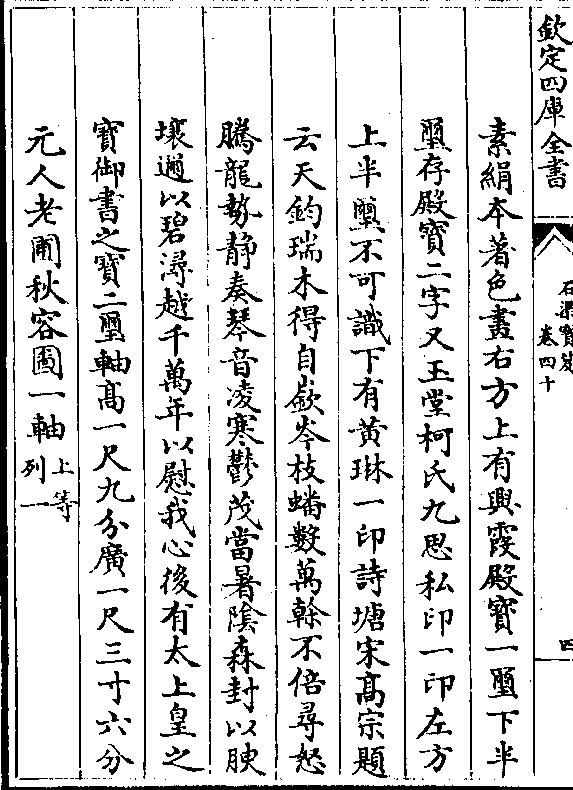 欽定四庫全書
石渠寳笈
卷四十
四
素絹本著色畫右方上有興霞殿寳一璽下半
璽存殿寳二字又玉堂柯氏九思私印一印左方
上半璽不可識下有黄琳一印詩塘宋髙宗題
云天鈞瑞木得自嶔岑枝蟠數萬榦不倍尋怒
騰龍勢静奏琴音凌寒鬱茂當暑陰森封以腴
壤迺以碧潯越千萬年以慰我心後有太上皇之
寳御書之寳二璽軸髙一尺九分廣一尺三寸六分
元人老圃秋容圖一軸 上等
列一